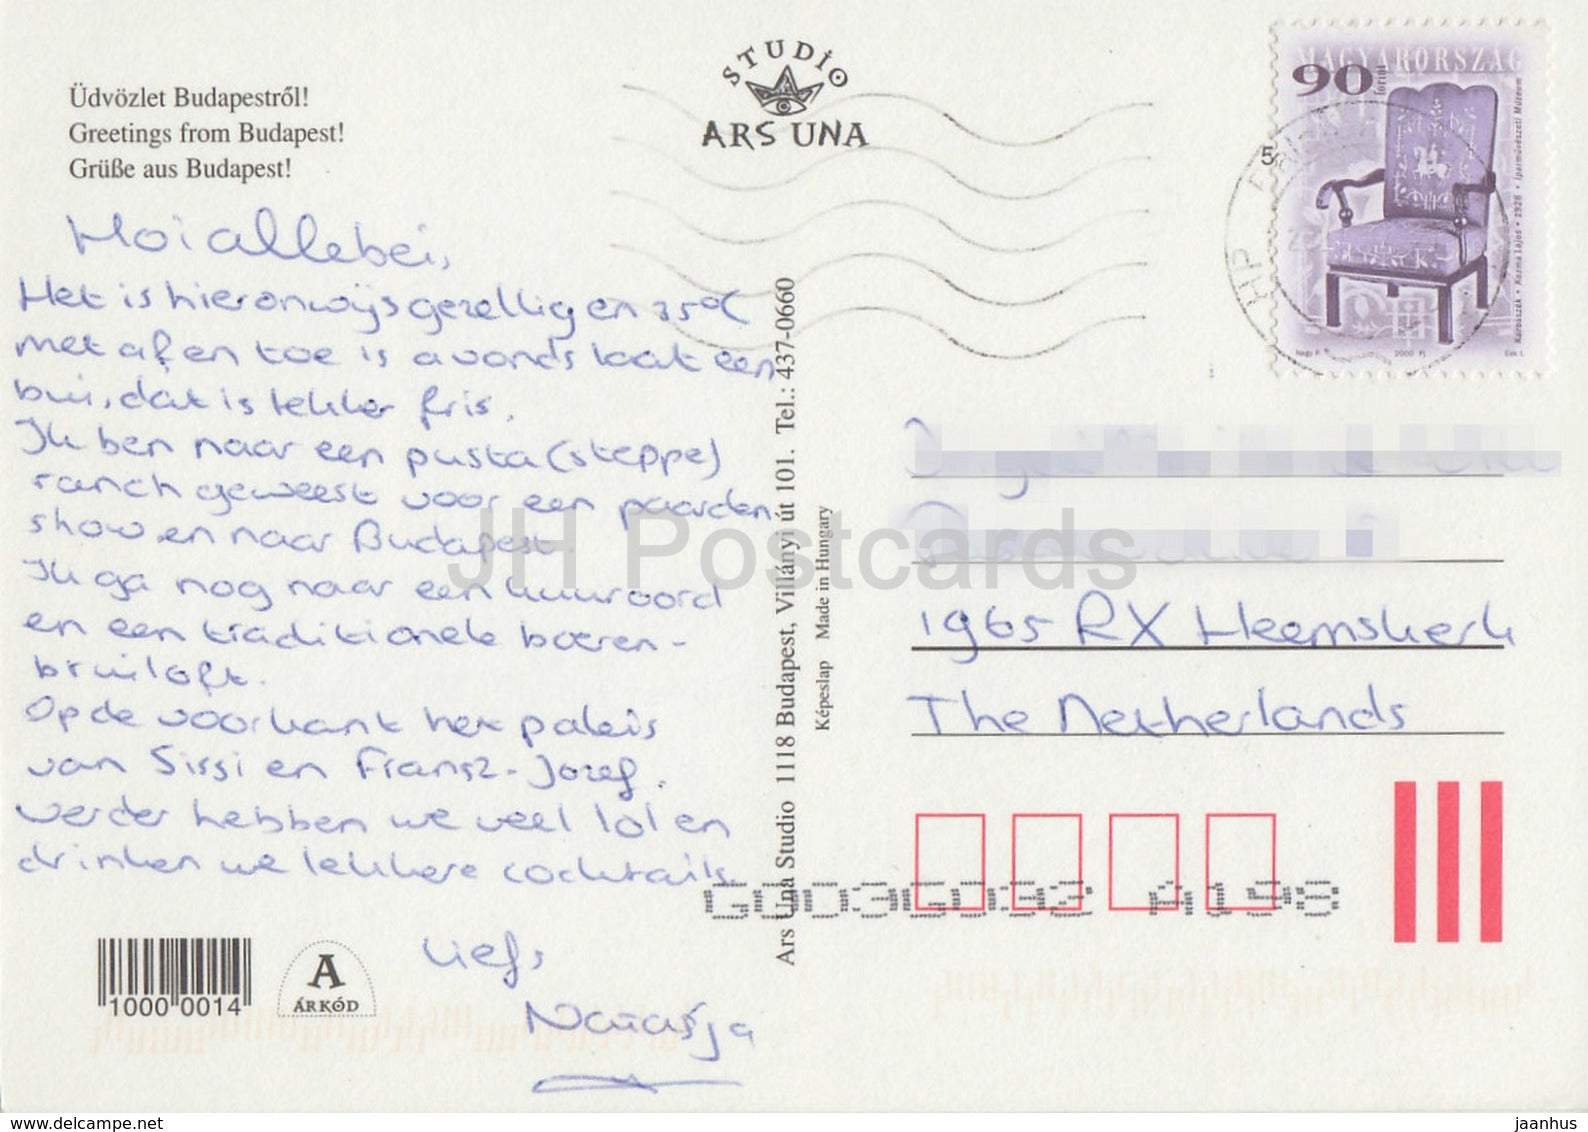 Üdvözlet Budapestről!
Greetings from Budapest!
Grüße aus Budapest!
STUDIO
ARS UNA
MAGYARORSZÁG
90
forint
Karosszék • Kozma Lajos • 1928 • Iparművészeti Múzeum
2000
Hoi allebei,
Het is hier onwijs gezellig en 35°C
met af en toe is avonds laat een
bui, dat is lekker fris.
Ik ben naar een pusta (steppe)
ranch geweest voor een paarden
show en naar Budapest.
Ik ga nog naar een kuuroord
en een traditionele boeren-
bruiloft.
Op de voorkant het paleis
van Sissi en Fransz-Jozef.
Verder hebben we veel lol en
drinken we lekkere cocktails.
Liefs
Natasja
Ars Una Studio 1118 Budapest, Villányi út 101. Tel.: 437-0660
Képeslap Made in Hungary
1965 RX Heemskerk
The Netherlands
10000014
A
ÁRKÓD
JH Postcards
www.delcampe.net
jaanhus